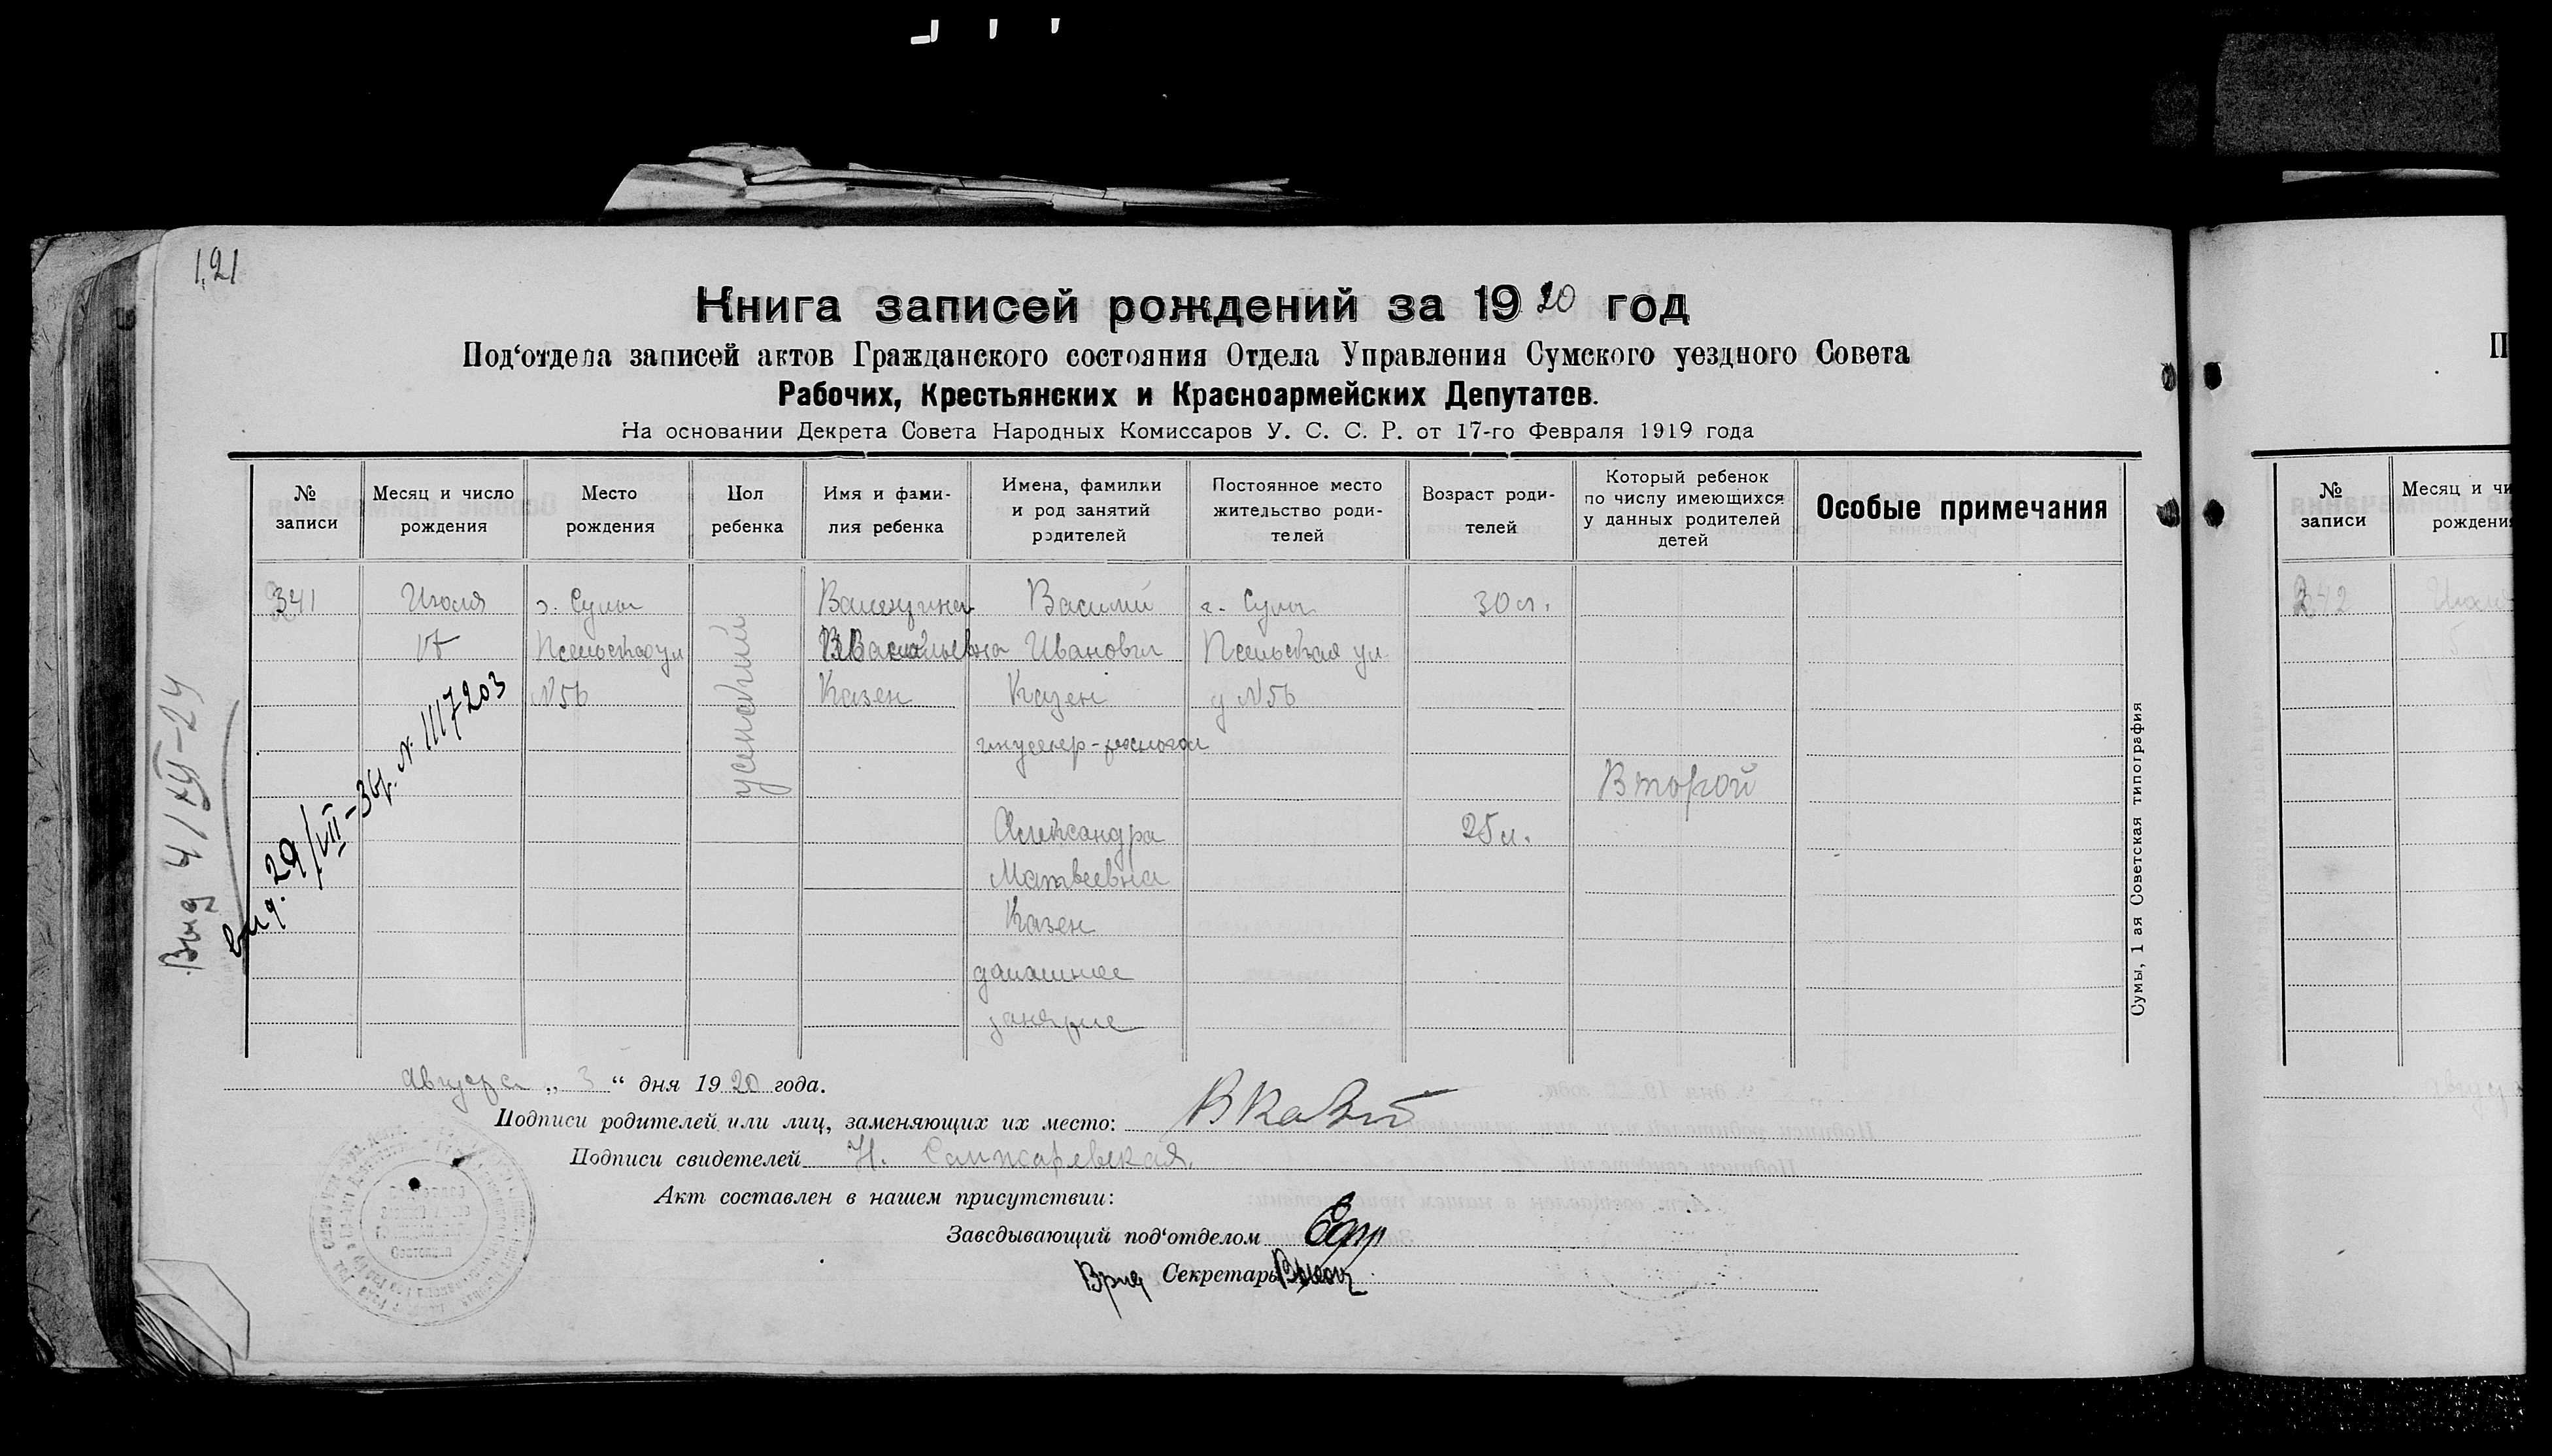 121
Книга записей рождений за 1920 год
Под‘отдела записей актов Гражданского состояния Отдела Управления Сумского уездного Совета
Рабочих, Крестьянских и Красноармейских Депутатов.
На основании Декрета Совета Народных Комиссаров У. С. С. Р. от 17-го Февраля 1919 года
№ записи
Месяц и число рождения
Место рождения
Пол ребенка
Имя и фами-
лия ребенка
Имена, фамилии
и род занятий
родителей
Постоянное место
жительство роди-
телей
Возраст роди-
телей
Который ребенок
по числу имеющихся
у данных родителей
детей
Особые примечания
341
Июля
г. Сумы
Псельская ул
№56
женский
Валентина
Васильевна
Казен
Василий
Иванович
Казен
инженер-технолог
Александра
Матвеевна
Казен
домашнее
занятие
г. Сумы
Псельская ул.
д №56
30 л.
25 л.
Второй
Выд 4/XII-24
Выд. 29/VII-36г. № 1117203
Сумы, 1 ая Советская типография
Августа „ 3 “ дня 1920 года.
Подписи родителей или лиц, заменяющих их место:
Подписи свидетелей Н.
Акт составлен в нашем присутствии:
Заведывающий под‘отделом
Врид Секретарь
П
№ записи
Месяц и чи
рождения
242
Июля
5